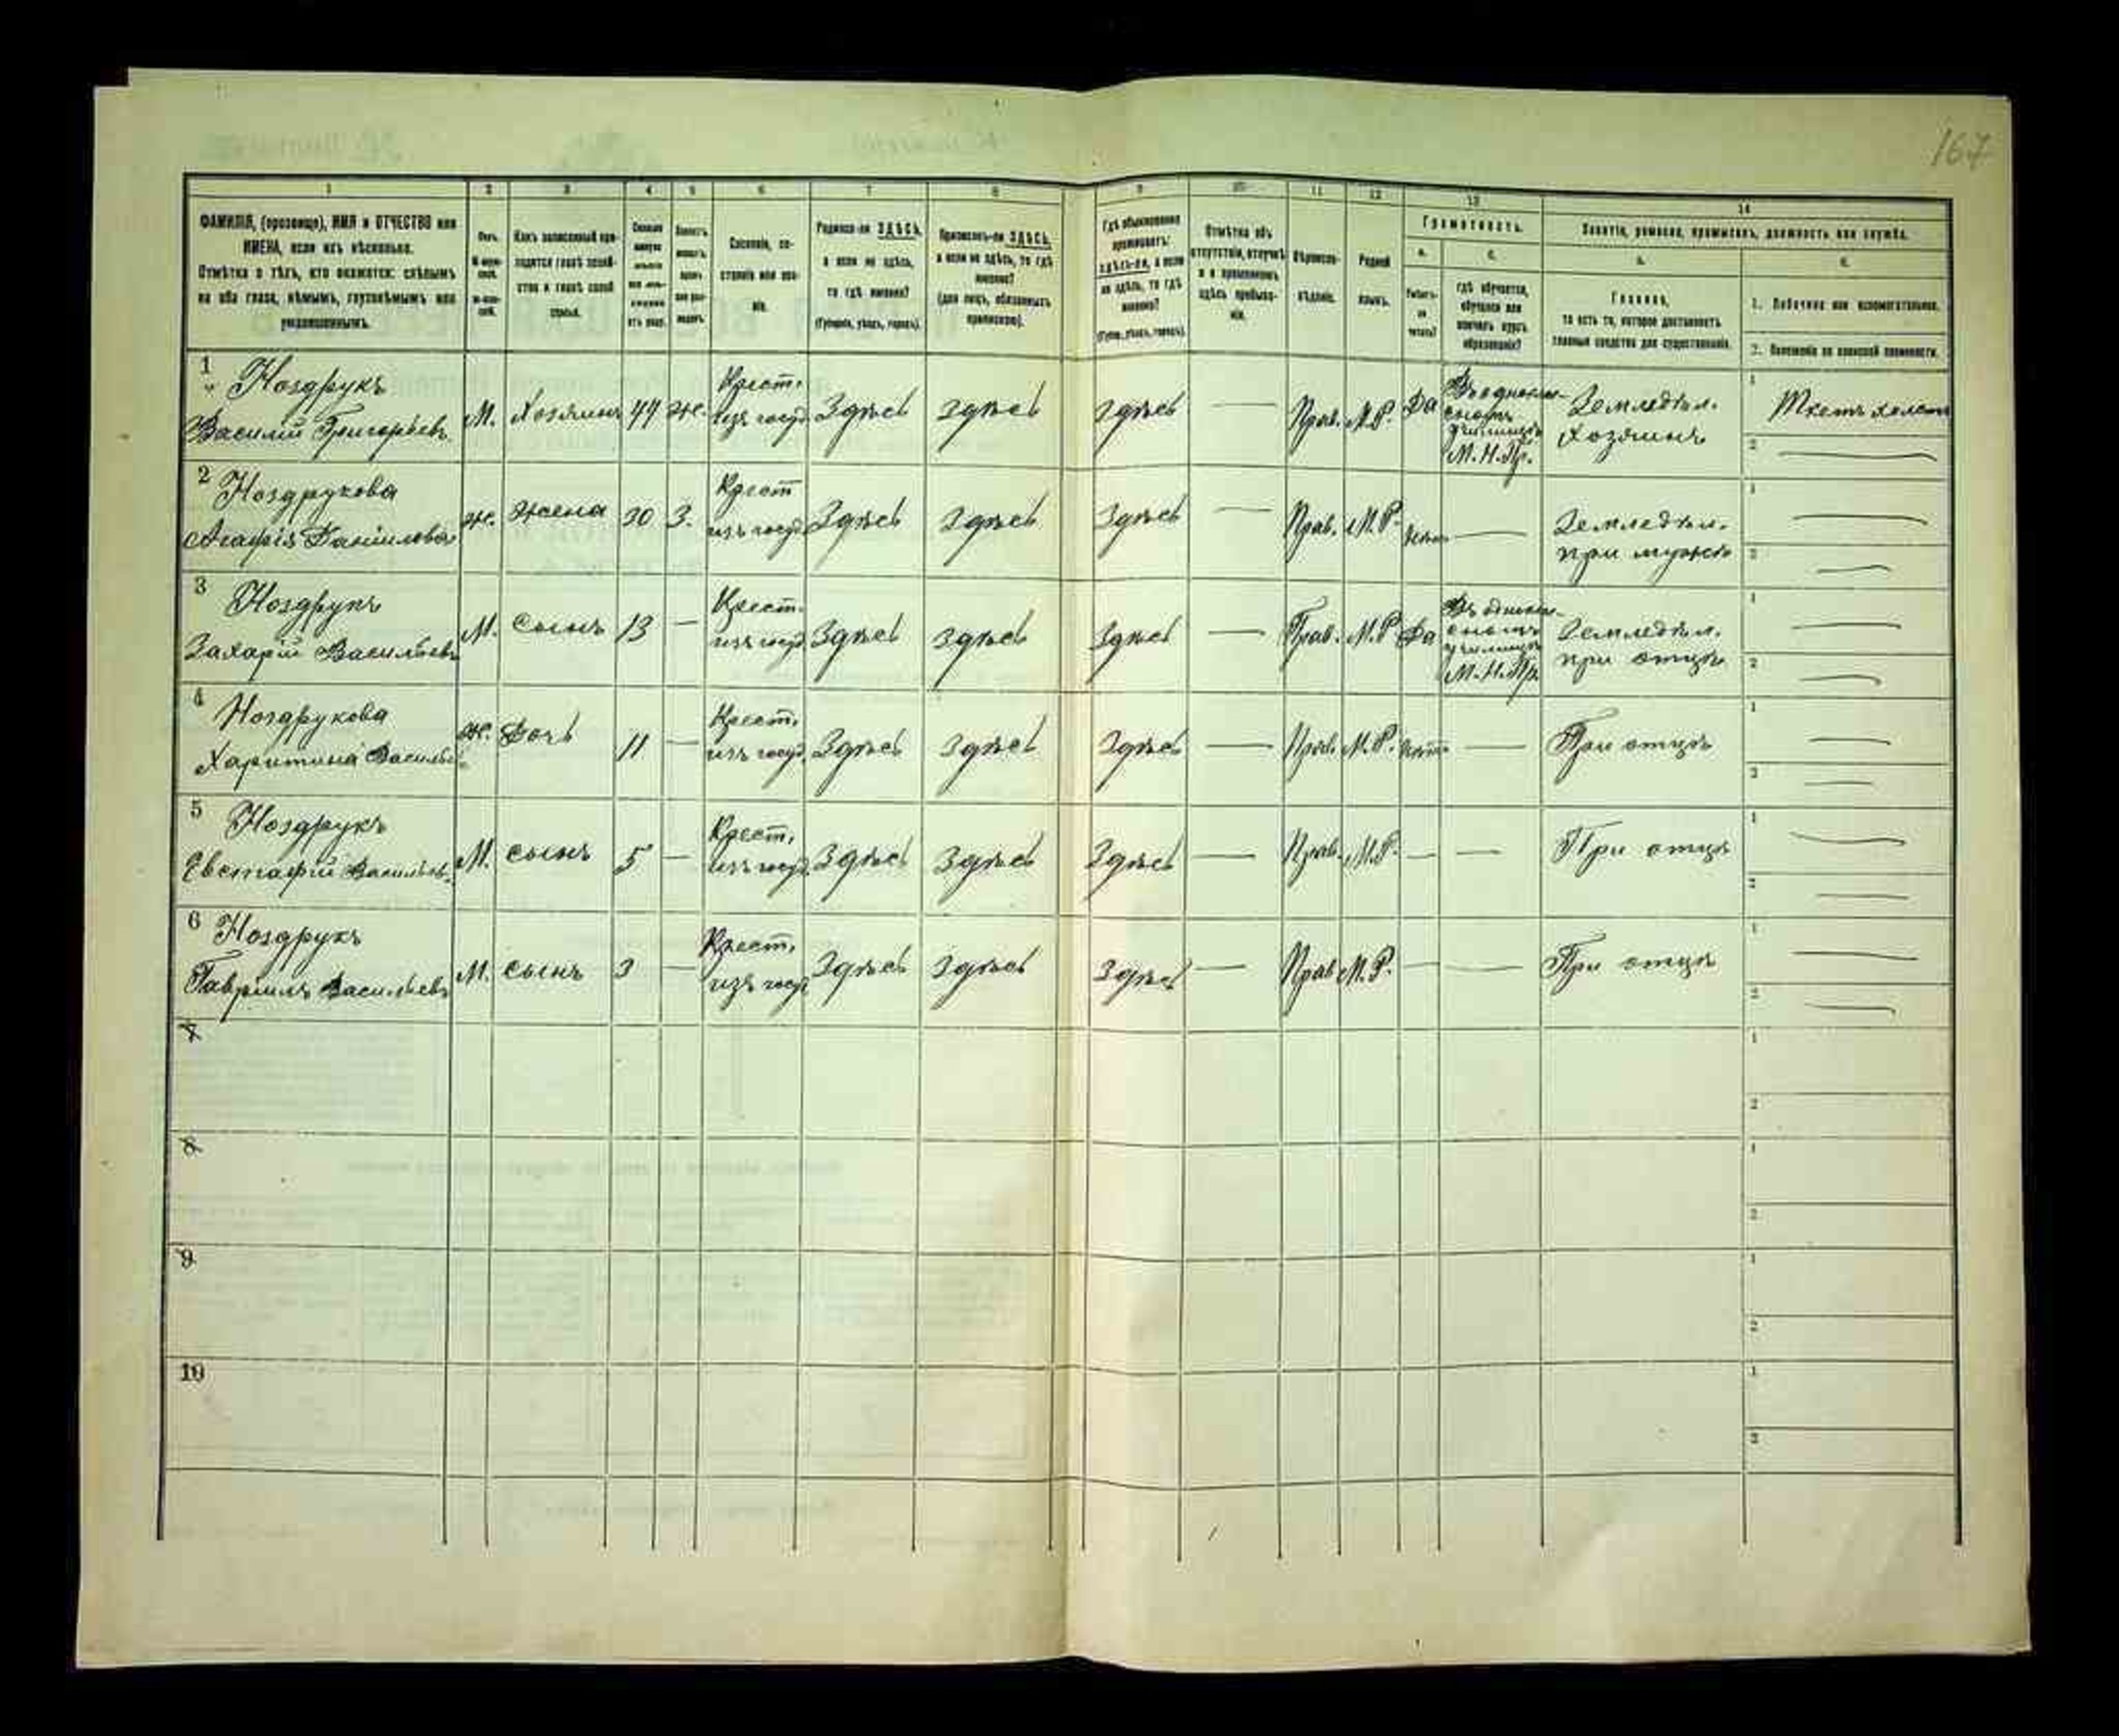 167
1 2 3 4 5 6 7 8 9 10 11 12 13 14
ФАМИЛІЯ, (прозвище), ИМЯ и ОТЧЕСТВО или
ИМЕНА, если ихъ нѣсколько.
Отмѣтка о тѣхъ, кто окажется: слѣпымъ
на оба глаза, нѣмымъ, глухонѣмымъ или
умалишеннымъ.
Полъ.
Какъ записанный при-
ходится главѣ хозяй-
ства и главѣ своей
семьи.
Сословіе, со-
стояніе или зва-
ніе.
Родился-ли ЗДѢСЬ,
а если не здѣсь,
то гдѣ именно?
(Губернія, уѣздъ, городъ).
Приписанъ-ли ЗДѢСЬ,
а если не здѣсь, то гдѣ
именно?
(для лицъ, обязанныхъ
припискою).
Гдѣ обыкновенно
проживаетъ:
здѣсь-ли, а если
не здѣсь, то гдѣ
именно?
(Губерн., уѣздъ, городъ).
Отмѣтка объ
отсутствіи, отлучкѣ
и о временномъ
здѣсь пребыва-
ніи.
Вѣроиспо-
вѣданіе.
Родной
языкъ.
Грамотность.
а.
Умѣетъ-
ли
читать?
б.
гдѣ обучается,
обучался или
кончилъ курсъ
образованія?
Занятіе, ремесло, промыселъ, должность или служба.
а.
Главное,
то есть то, которое доставляетъ
главныя средства для существованія.
б.
1. Побочное или вспомогательное.
2. Положеніе по воинской повинности.
1 Ноздрукъ
Василій Григорьевъ М. Хозяинъ 44 Ж. Крест. изъ госуд. Здѣсь Здѣсь Здѣсь — Прав. М.Р. Да
Въ однокласномъ училищѣ М.Н.Пр.
Земледѣл. хозяинъ
1 Ткетъ холстъ
2 —
2 Ноздрукова
Агафія Даніилова ж. жена 30 З. Крест изъ госуд. Здѣсь Здѣсь Здѣсь — Прав. М.Р. —
Земледѣл. при мужѣ
1 —
2 —
3 Ноздрукъ
Захарій Васильевъ М. сынъ 13 — Крест. изъ госуд. Здѣсь Здѣсь Здѣсь — Прав. М.Р Да
Въ однокласномъ училищѣ М.Н.Пр.
Земледѣл. при отцѣ
1 —
2 —
4 Ноздрукова
Харитина ж. Дочь 11 — Крест. изъ госуд. Здѣсь Здѣсь Здѣсь — Прав. М.Р. —
При отцѣ
1 —
2 —
5 Ноздрукъ
Евстафій Васильев. М. сынъ 5 — Крест. изъ госуд. Здѣсь Здѣсь Здѣсь — Прав. М.Р. — —
При отцѣ
1 —
2 —
6 Ноздрукъ
Гавріилъ Васильевъ М. сынъ 3 — Крест. изъ госуд Здѣсь Здѣсь Здѣсь — Прав М.Р. — —
При отцѣ
1 —
2 —
7 1
2
8 1
2
9 1
2
10 1
2